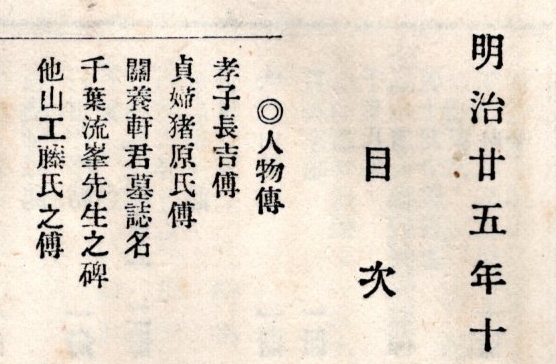 明治廿五年十
目次
◎人物傳
孝子長吉傳
貞婦猪原氏傳
關養軒君墓誌名
千葉流峯先生之碑
他山工藤氏之傳